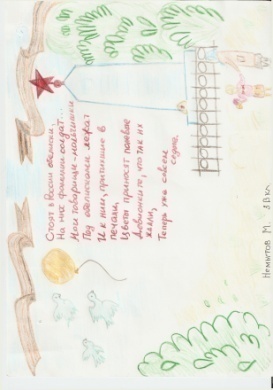 Стоят в России обелиски,
На них фамилии солдат...
Мои товарищи-мальчишки
Под обелисками лежат
И к ним, притихшие в
печали,
Цветы приносят полевые
Девчонки те, что так их
ждали,
Теперь уже совсем
седые.
Немитов М. 3 В кл.